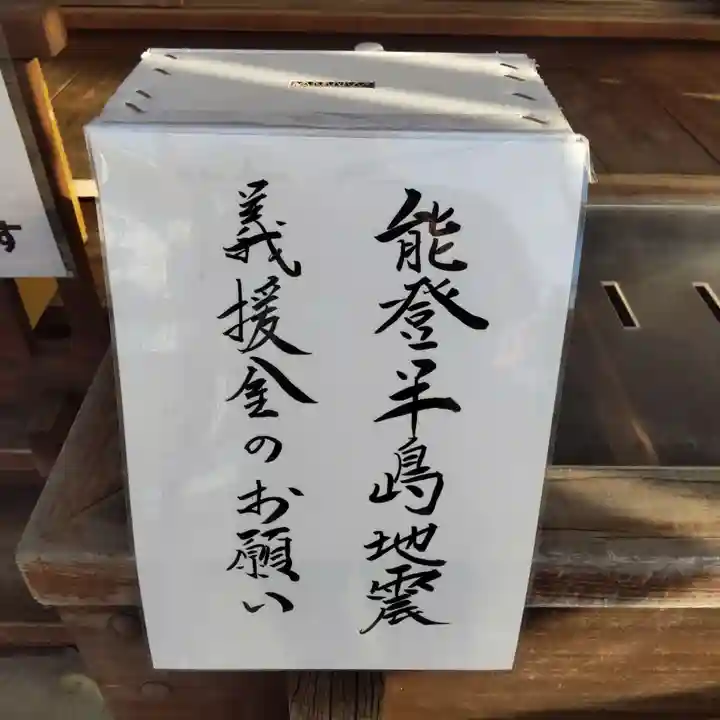 能登半嶋地震
義援金のお願い
す